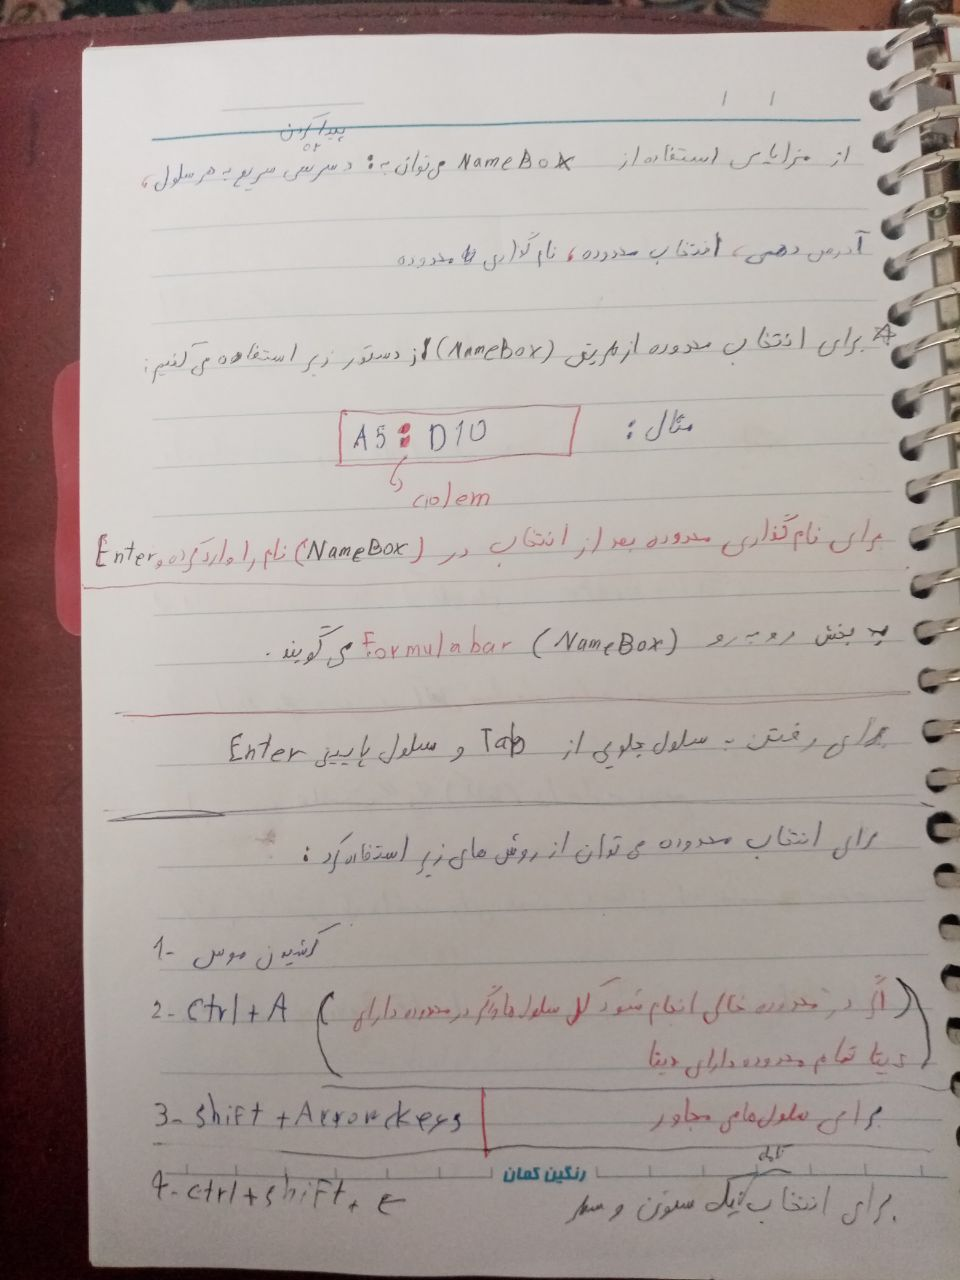 پیدا کردن
از مزایای استفاده از NameBox می‌توان به: دسترسی سریع به هر سلول،
آدرس دهی، انتخاب محدوده، نام گذاری محدوده
برای انتخاب محدوده از طریق (NameBox) از دستور زیر استفاده می‌کنیم:
مثال: A5:D10
برای نام گذاری محدوده بعد از انتخاب در (NameBox) نام را وارد کرده و Enter
به بخش روبه‌رو (NameBox) Formulabar می‌گویند.
برای رفتن به سلول جلویی از Tab و سلول پایینی Enter
برای انتخاب محدوده می‌توان از روش های زیر استفاده کرد:
1- کشیدن موس
2- Ctrl+A (اگر در محدوده خالی انجام شود کل سلول ها و اگر در محدوده دارای
دیتا تمام محدوده دارای دیتا)
3- shift + Arrow keys برای سلول های مجاور
رنگین کمان
4- ctrl+shift+ برای انتخاب یک ستون و سطر